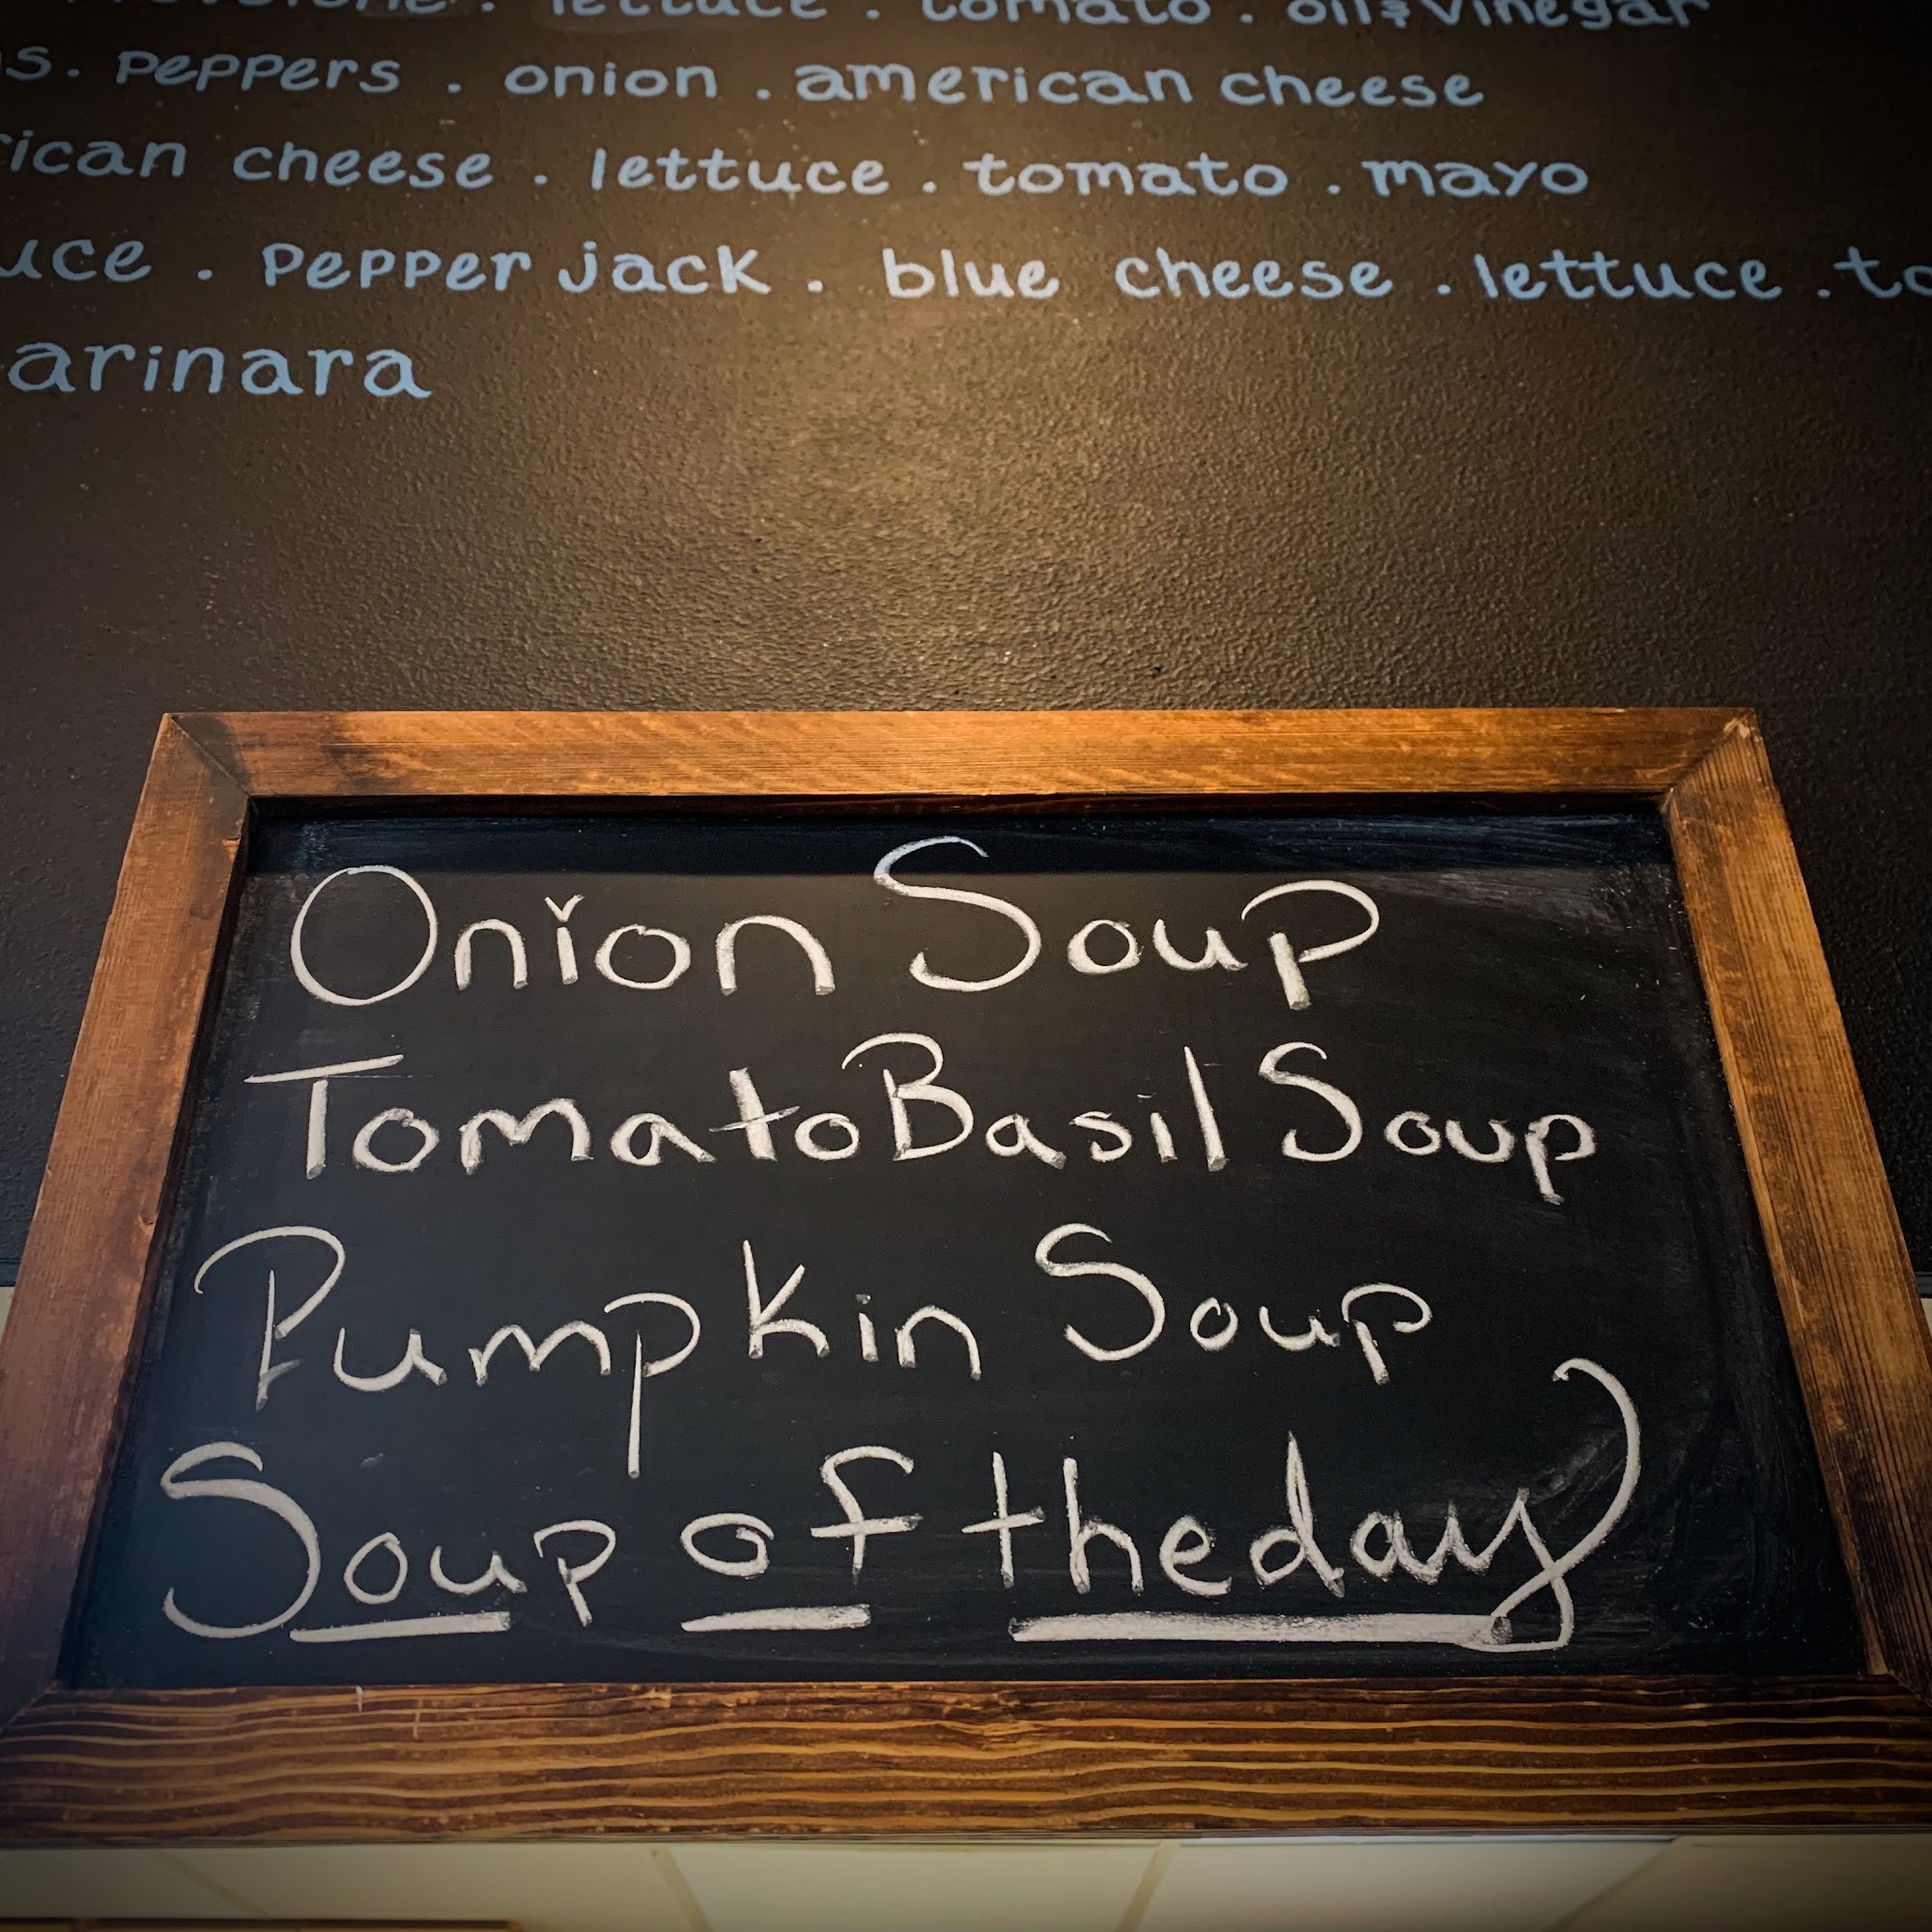 . lettuce . tomato . oil & vinegar
. peppers . onion . american cheese
cheese . lettuce . tomato . mayo
. pepper jack . blue cheese . lettuce .
Onion Soup
Tomato Basil Soup
Pumpkin Soup
Soup of the day